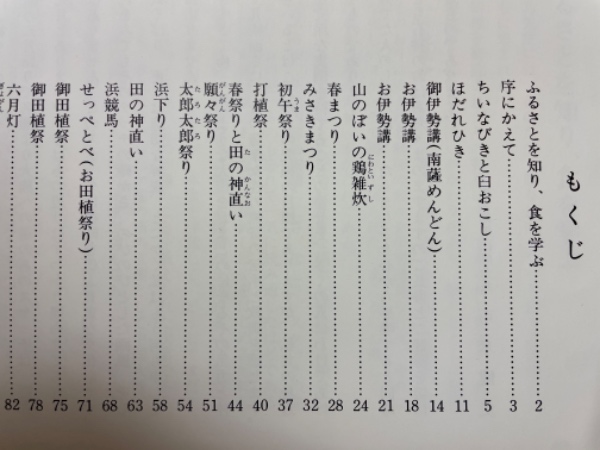 もくじ
ふるさとを知り、食を学ぶ……2
序にかえて……3
ちいなびきと臼おこし……5
ほだれひき……11
御伊勢講(南薩めんどん)……14
お伊勢講……18
お伊勢講……21
山のぼいの鶏雑炊……24
春まつり……28
みさきまつり……32
初午祭り……37
打植祭……40
春祭りと田の神直い……44
願々祭り……51
太郎太郎祭り……54
浜下り……58
田の神直い……63
浜競馬……68
せっぺとべ(お田植祭り)……71
御田植祭……75
御田植祭……78
六月灯……82